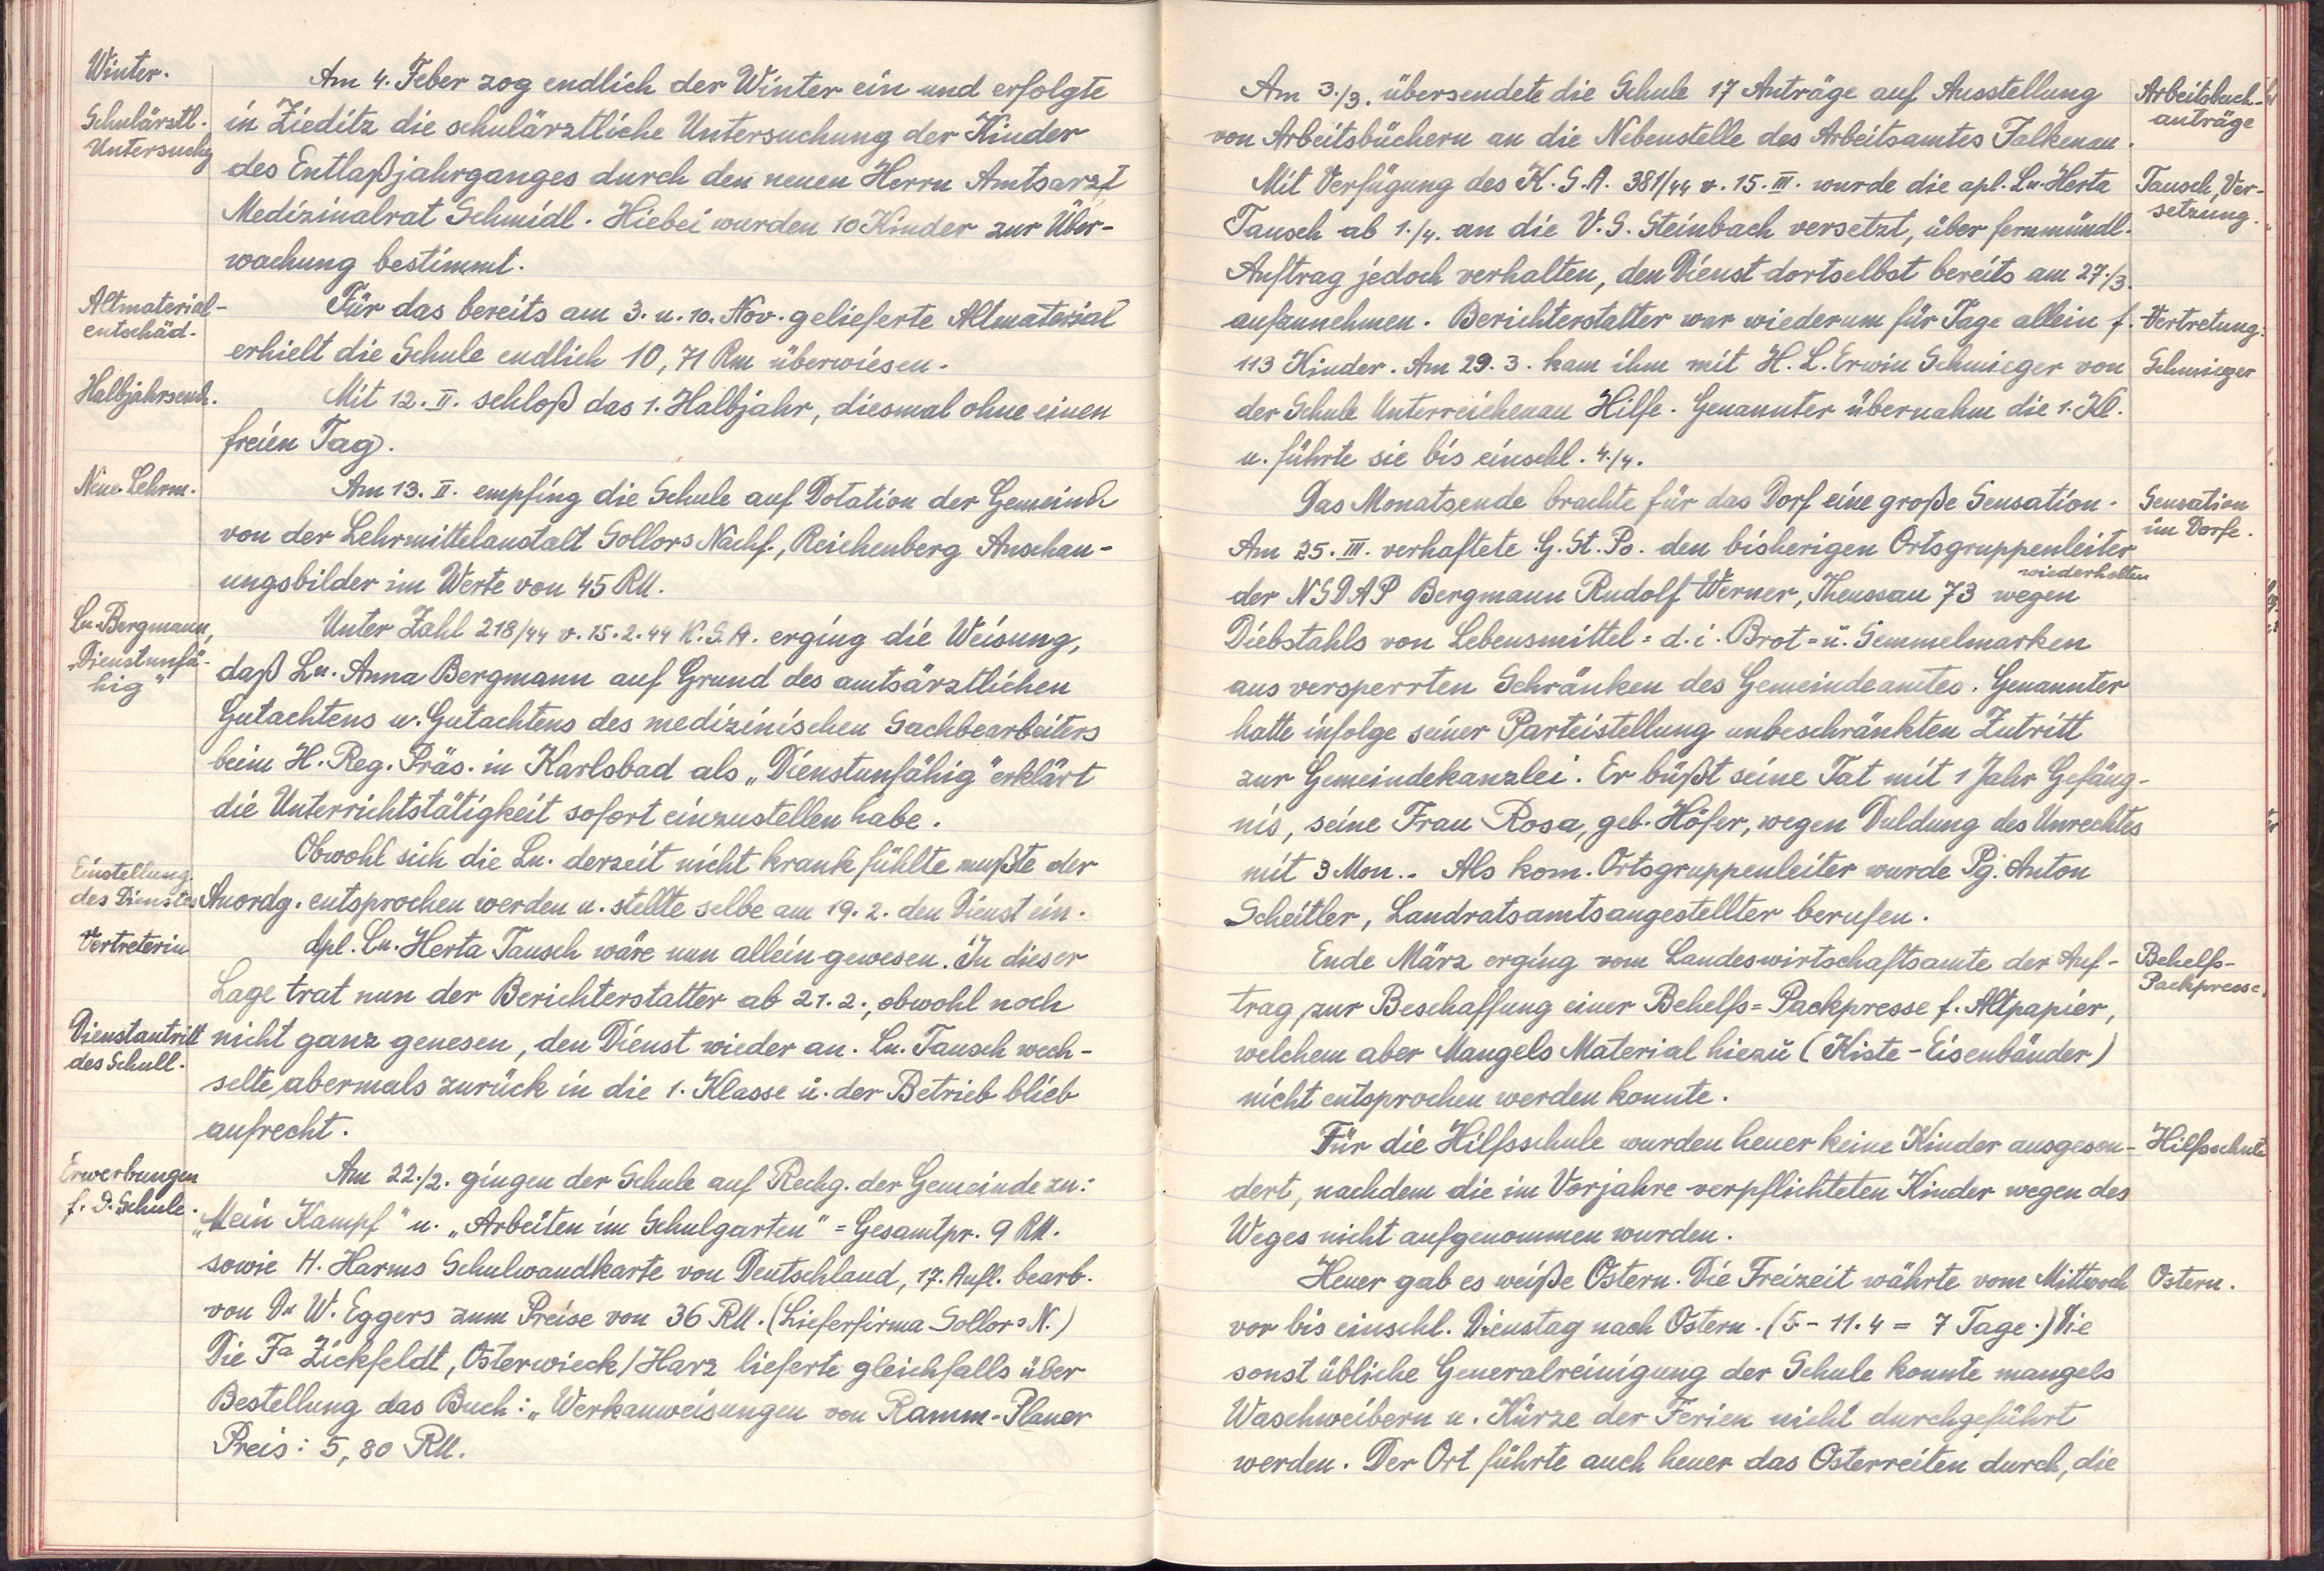 Winter.
Am 4. Feber zog endlich der Winter ein und erfolgte
Schulärztl.
Untersuchg
in Zieditz die schulärztliche Untersuchung der Kinder
des Entlaßjahrganges durch den neuen Herrn Amtsarzt
Medizinalrat Schmidl. Hiebei wurden 10 Kinder zur Über-
wachung bestimmt.
Altmaterial-
entschäd.
Für das bereits am 3. u. 10. Nov. gelieferte Altmaterial
erhielt die Schule endlich 10,71 Rm überwiesen.
Halbjahrsende.
Mit 12. II. schloß das 1. Halbjahr, diesmal ohne einen
freien Tag.
Neue Lehrm.
Am 13. II. empfing die Schule auf Dotation der Gemeinde
von der Lehrmittelanstalt Sollors Nachf., Reichenberg Anschau-
ungsbilder im Werte von 45 RM.
Ln. Bergmann,
„Dienstunfä-
hig"
Unter Zahl 218/44 v. 15.2.44 K.S.A. erging die Weisung,
daß Ln. Anna Bergmann auf Grund des amtsärztlichen
Gutachtens u. Gutachtens des medizinischen Sachbearbeiters
beim H. Reg. Präs. in Karlsbad als „Dienstunfähig" erklärt
die Unterrichtstätigkeit sofort einzustellen habe.
Obwohl sich die Ln. derzeit nicht krank fühlte mußte der
Einstellung
des Dienstes
Anordg. entsprochen werden u. stellte selbe am 19.2. den Dienst ein.
Vertreterin
Apl. Ln. Herta Tausch wäre nun allein gewesen. In dieser
Lage trat nun der Berichterstatter ab 21.2., obwohl noch
Dienstantritt
des Schull.
nicht ganz genesen, den Dienst wieder an. Ln. Tausch wech-
selte abermals zurück in die 1. Klasse u. der Betrieb blieb
aufrecht.
Erwerbungen
f. d. Schule.
Am 22./2. gingen der Schule auf Rechg. der Gemeinde zu:
„Mein Kampf" u. „Arbeiten im Schulgarten" = Gesamtpr. 9 RM.
sowie H. Harms Schulwandkarte von Deutschland, 17. Aufl. bearb.
von Dr W. Eggers zum Preise von 36 RM. (Lieferfirma Sollors N.)
Die Fa Zickfeldt, Osterwieck/Harz lieferte gleichfalls über
Bestellung das Buch: „Werkanweisungen von Ramm-Planer
Preis: 5,80 RM.
Am 3./3. übersendete die Schule 17 Anträge auf Ausstellung
von Arbeitsbüchern an die Nebenstelle des Arbeitsamtes Falkenau.
Arbeitsbuch-
anträge
Mit Verfügung des K.S.A. 381/44 v. 15. III. wurde die apl. Ln. Herta
Tausch ab 1./4. an die V.S. Steinbach versetzt, über fernmündl.
Tausch, Ver-
setzung.
Auftrag jedoch verhalten, den Dienst dortselbst bereits am 27./3.
aufzunehmen. Berichterstatter war wiederum für Tage allein f.
Vertretung:
113 Kinder. Am 29.3. kam ihm mit H. L. Erwin Schmieger von
Schmieger
der Schule Unterreichenau Hilfe. Genannter übernahm die 1. Kl.
u. führte sie bis einschl. 4./4.
Das Monatsende brachte für das Dorf eine große Sensation.
Sensation
im Dorfe.
Am 25. III. verhaftete G.St.Po. den bisherigen Ortsgruppenleiter
wiederholten
der NSDAP Bergmann Rudolf Werner, Theussau 73 wegen
Diebstahls von Lebensmittel= d.i. Brot= u. Semmelmarken
aus versperrten Schränken des Gemeindeamtes. Genannter
hatte infolge seiner Parteistellung unbeschränkten Zutritt
zur Gemeindekanzlei. Er büßt seine Tat mit 1 Jahr Gefäng-
nis, seine Frau Rosa, geb. Höfer, wegen Duldung des Unrechtes
mit 3 Mon.- Als kom. Ortsgruppenleiter wurde Pg. Anton
Scheitler, Landratsamtsangestellter berufen.
Ende März erging vom Landeswirtschaftsamte der Auf-
Behelfs-
Packpresse.
trag zur Beschaffung einer Behelfs=Packpresse f. Altpapier,
welchem aber Mangels Material hiezu (Kiste-Eisenbänder)
nicht entsprochen werden konnte.
Für die Hilfsschule wurden heuer keine Kinder ausgeson-
Hilfsschule
dert, nachdem die im Vorjahre verpflichteten Kinder wegen des
Weges nicht aufgenommen wurden.
Heuer gab es weiße Ostern. Die Freizeit währte vom Mittwoch
Ostern.
vor bis einschl. Dienstag nach Ostern. (5-11.4 = 7 Tage.) Die
sonst übliche Generalreinigung der Schule konnte mangels
Waschweibern u. Kürze der Ferien nicht durchgeführt
werden. Der Ort führte auch heuer das Osterreiten durch, die